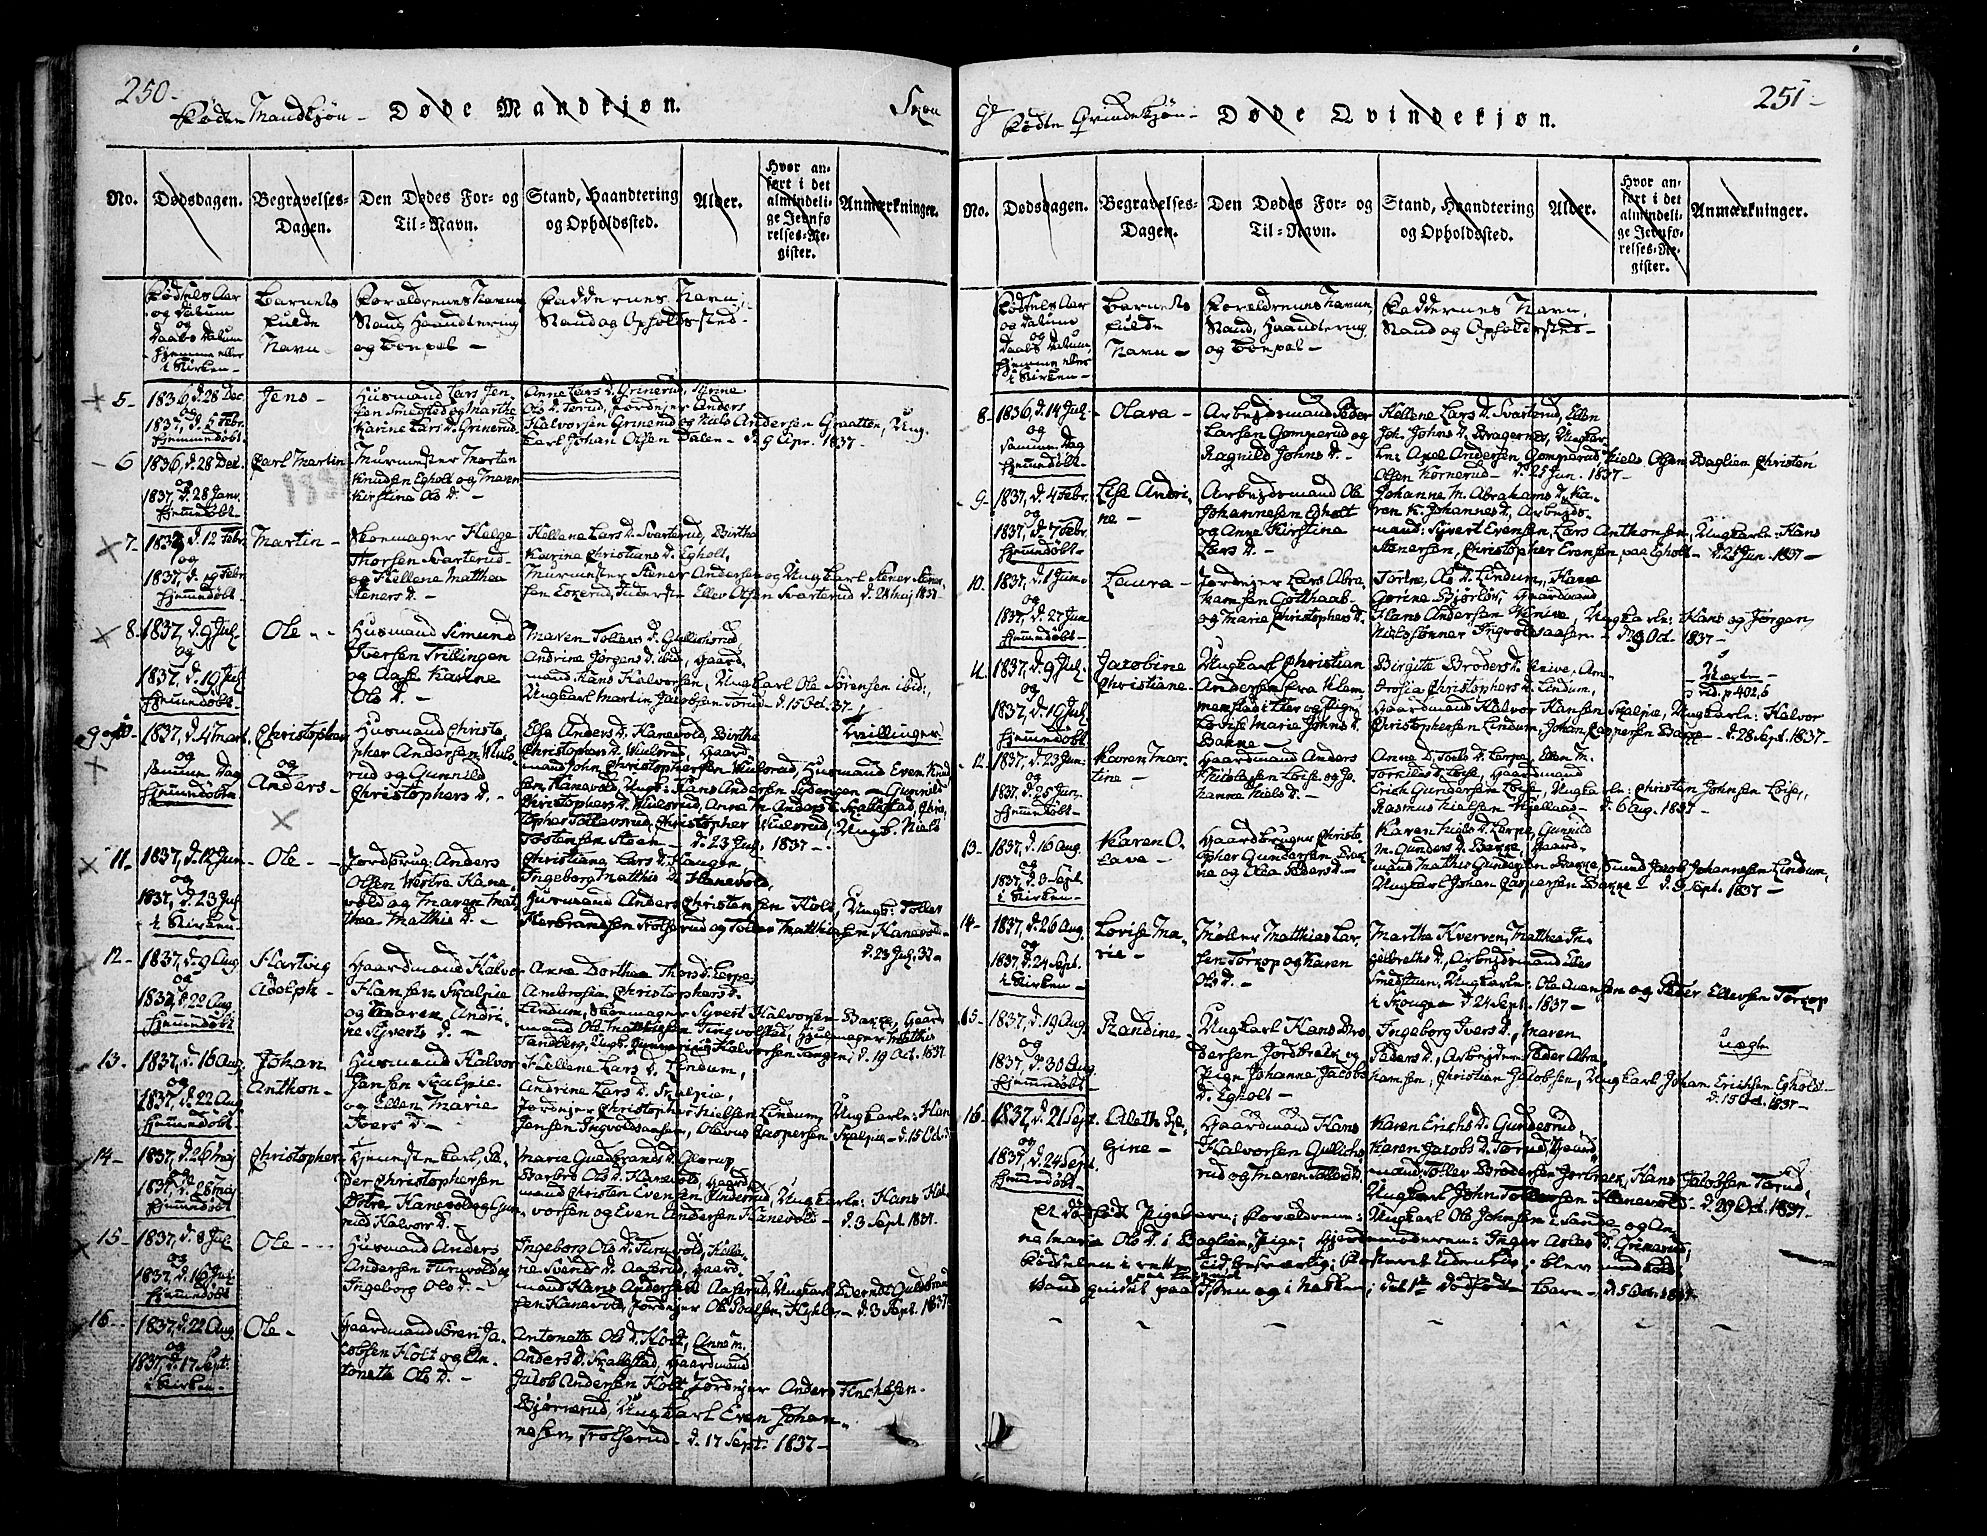 250-
Fødte Mandkjøn - Døde Mandkjøn.
No. Dødsdagen. Begravelses-Dagen. Den Dødes For- og Til-Navn. Stand, Haandtering og Opholdssted. Alder. Hvor anført i det almindelige Jevnførelses-Register. Anmærkninger.
Fødsels Aar og Datum og Daabs Datum hjemme eller i Kirken -
Barnets fulde Navn -
Forældrenes Navn, Stand, Haandtering og Bopæl -
Faddernes Navn, Stand og Opholdssted -
5-
1836, d. 28 Dec.
og
1837, d. 5 Febr.
hjemmedøbt
Jens -
Husmand Lars Jensen Smedsted og Marthe
Karine Lars D. Grinerud
Anne Lars D. Grinerud,
Ols D. Torud, Jordejer Anders
Halvorsen Grinerud og Niels Andersen Graatten, Ung.
Carl Johan Olsen Dalen - d. 9 Apr. 1837 -
6
1836, d. 28 Dec.
og
1837, d. 28 Janv.
hjemmedøbt
Carl Martin
Murmester Morten
Knudsen Egholt og Maren
Kirstine Ols D. -
7-
1837, d. 12 Febr.
og
1837, d. Febr.
hjemmedøbt
Martin -
Skomager Helge
Thorsen Svarterud
og Hellene Matthea
Steners D. -
Hellene Lars D. Svarterud, Birthe
Karine Christians D. Egholt,
Murmester Stener Andersen og Ungkarl Stener Stenersen
Ellev Olsen Svarterud d. 28 Maj 1837 -
8-
1837, d. 9 Jul.
og
1837, d. 19 Jul.
hjemmedøbt -
Ole - -
Husmand Simund
Iversen Trillingen
og Aase Karine
Ols D. -
Maren Tollers D. Gullichsrud
Andrine Jørgens D. ibid, Gaardmand
Hans Halvorsen, Ungkarl Ole Sørensen ibid:,
Ungkarl Martin Jacobsen Torud - d. 15 Oct. 37 -
9 og 10-
1837, d. 4 Mart.
og
samme Dag
hjemmedøbte
Christopher
og
Anders -
Husmand Christopher
Andersen Wulsrud
og Gunnild
Christophers D. -
Else Anders D. Hanevold, Birthe
Christophers D. Wulsrud, Gaardmand
John Christophersen Wulsrud, Husmand Even Knudsen
Hanevold, Ungk: Hans Andersen Sydengen - Gunnild
Christophers D. Wulsrud, Anne M. Anders D. Skallstad, Christopher
Tollevsrud, Christopher Wulsrud, Ungk. Niels
Tostensen Steen - d. 23 Jul. 1837 -
Tvillinger
11-
1837, d. 12 Jun.
og
1837, d. 23 Jul.
i Kirken
Ole - -
Jordbrug. Anders
Olsen Westre Hanevold
og Maren Matthea
Matthis D. -
Christiane Lars D. Haugen
Ingeborg Matthis D. Hanevold,
Husmand Anders Christensen Hols, Ungk: Toller
Herbrandsen Trolserud og Toller Matthisen Hanevold
d. 23 Jul. 37 -
12-
1837, d. 9 Aug.
og
1837, d. 22 Aug.
hjemmedøbt
Hartvig
Adolph -
Gaardmand Halvor
Hansen Skalpie
og Maren Andrine
Syverts D. -
Anne Dorthea Thors D. Lerpe
Ambrosia Christophers D.
Lindum, Skomager Syvert Halvorsen Bakke, Gaardmand
Ole Matthisen Tingvolstad, Hjulmager Matthis
Tandberg, Ungk. Gunnerius Halvorsen Tangen, d. 19 Oct. 1837
13-
1837, d. 16 Aug.
og
1837, d. 22 Aug.
hjemmedøbt
Johan
Anthon -
Husmand Halvor
Jensen Skalpie
og Ellen Marie
Ivers D. -
Hellene Lars D. Lindum,
Andrine Lars D. Skalpie,
Jordejer Christopher Nielsen Lindum, Ungkarle: Hans
Jensen Ingvoldsaasen, Olavus Caspersen Skalpie - d. 15 Oct.
14-
1837, d. 26 Maj
og
1837, d. 28 Maj
hjemmedøbt
Christopher -
Tjenestekarl, Peder
Christophersen
Østre Hanevold og Gunnild
Halvor D. -
Marie Guldbrands D.
Barbro Ols D. Hanevold, Gaardmand
Christen Evensen Anderud, Ungkarle: Hans Halvorsen
og Even Andersen Hanevold - d. 3 Sept. 1837.
15-
1837, d. 8 Jul.
og
1837, d. 16 Jul.
hjemmedøbt
Ole - - -
Husmand Anders
Andersen Furuvold og
Ingeborg Ols D. -
Ingeborg Ols D. Furuvold, Hellene
Svends D. Aaserud, Gaardmand
Hans Andersen Aaserud, Ungkarl Berndt Guldbrandsen
Hanevold, Jordejer Ole Paulsen - d. 3 Sept. 1837
16-
1837, d. 22 Aug.
og
1837, d. 17 Sept.
i Kirken -
Ole -
Gaardmand Søren Jacobsen
Holt og Antonette
Ols D. -
Antonette Ols D. Holt, Anne M.
Anders D. Skallstad, Gaardmand
Jacob Andersen Holt, Jordejer Anders Finchesen
Bjørnerud, Ungkarl Even Johannesen
Trolserud - d. 17 Sept. 1837 -
251-
Fødte Qvindekjøn - Døde Qvindekjøn.
No. Dødsdagen. Begravelses-Dagen. Den Dødes For- og Til-Navn. Stand, Haandtering og Opholdssted. Alder. Hvor anført i det almindelige Jevnførelses-Register. Anmærkninger.
Fødsels Aar og Datum og Daabs Datum, hjemme eller i Kirken -
Barnets fulde Navn -
Forældrenes Navn, Stand, Haandtering og Bopæl -
Faddernes Navn, Stand og Opholdssted -
8-
1836, d. 14 Jul.
og
samme Dag
hjemmedøbt -
Olava -
Arbejdsmand Peder
Larsen Gomperud og
Ragnild Johns D. -
Hellene Lars D. Svarterud, Ellen
Johns D. Bragernes, Ungkarle:
Axel Andersen Gomperud, Niels Olsen Baglien, Christen
Olsen Kornerud - d. 25 Jun. 1837 -
9-
1837, d. 4 Febr.
og
1837, d. 7 Febr.
hjemmedøbt -
Lise Andrine
-
Arbejdsmand Ole
Johannesen Egholt
og Anne Kirstine
Lars D. -
Johanne M. Abrahams D., Karen
K. Johannes D., Arbejdsmand:
Syvert Evensen, Lars Anthonsen, Ungkarle: Hans
Stenersen, Christopher Evensen, paa Egholt - d. 25 Jun. 1837 -
10.
1837, d. 1 Jun.
og
1837, d. 27 Jun.
hjemmedøbt -
Laura -
Jordejer Lars Abrahamsen
Gotthaab
og Marie Christophers D.
Torine, Ols D. Lindum, Hanne
Gorine Bjørløv, Gaardmand
Hans Andersen Knive, Ungkarle: Hans og Jørgen
Nielssønner Ingvoldsaasen - d. 9 Oct. 1837 -
11.
1837, d. 9 Jul.
og
1837, d. 19 Jul.
hjemmedøbt -
Jacobine
Christiane -
Ungkarl Christian
Andersen fra Klemmensstad
i Lier og Pigen
Lovise Marie Johns D.
Bakke -
Birgite Brøders D. Knive, Ambrosia
Christophers D. Lindum,
Gaardmand Halvor Hansen Skalpie, Ungkarle: Halvor
Christophersen Lindum, Johan Caspersen Bakke - d. 28 Sept. 1837 -
Uægte
vid. p 402, 6
12-
1837, d. 23 Jun.
og
1837, d. 25 Jun.
hjemmedøbt
Karen Martine
-
Gaardmand Anders
Nielsen Loise og Johanne
Niels D. -
Anne D. Toels D. Lerpe, Ellen M.
Torkilds D. Loise, Gaardmand
Erich Gundersen Loise, Ungkarle: Christen Johnsen Loise,
Rasmus Nielsen Hjellaas - d. 6 Aug. 1837 -
13-
1837, d. 16 Aug.
og
1837, d. 3 Sept.
i Kirken -
Karen Olave
-
Gaardbruger Christopher
Gundersen Bakke
og Olea Peders D. -
Karen Niels D. Lerpe, Gunnild
M. Gunders D. Bakke, Gaardmand
Matthis Gundersen Bakke, Svend Jacob Johannesen Lindum,
Ungkarl Johan Caspersen Bakke - d. 3 Sept. 1837 -
14-
1837, d. 26 Aug.
og
1837, d. 24 Sept.
i Kirken -
Lovise Marie
-
Møller Matthias Larsen
Torkop og Karen
Ols D. -
Martha Kverven, Matthea Ingelbreths
D., Arbejdsmand
Smedstuen, Ungkarle: Ole Auensen og Peder Ellefsen Torkop
i Skouge - d. 24 Sept. 1837 -
15-
1837, d. 19 Aug.
og
1837, d. 30 Aug.
hjemmedøbt
Randine -
Ungkarl Hans Brodersen
Jordbræk og
Pigen Johanne Jacobs
D. Egholt -
Ingeborg Ivers D., Maren
Peders D., Arbejdere: Peder Abrahamsen,
Christian Jacobsen, Ungkarl Johan Erichsen Egholt -
d. 15 Oct. 1837 -
uægte
16-
1837, d. 21 Sept.
og
1837, d. 24 Sept.
hjemmedøbt
Aleth Regine
-
Gaardmand Hans
Halvorsen Gullichsrud
og Maren Tollers D.
Karen Erichs D. Gunderud,
Karen Jacobs D. Torud, Gaardmand
Tollev Brødersen Jorbræk, Hans Jacobsen Torud,
Ungkarl John Tollersen Hanevold - d. 29 Oct. 1837 -
Et dødfødt Pigebarn; Forældrene: Ungkarl Ole Johnsen i Sande og Anne
Maria Ols D. i Baglien, Pige; Gjordemoderen: Inger Aslas D. Grinerud;
Fødselen i rette Tid, besværlig; Fosteret blev
Vand gnidet paa og i Nakken; det 1te dødfødte Barn - d. 5 Oct. 1837 -